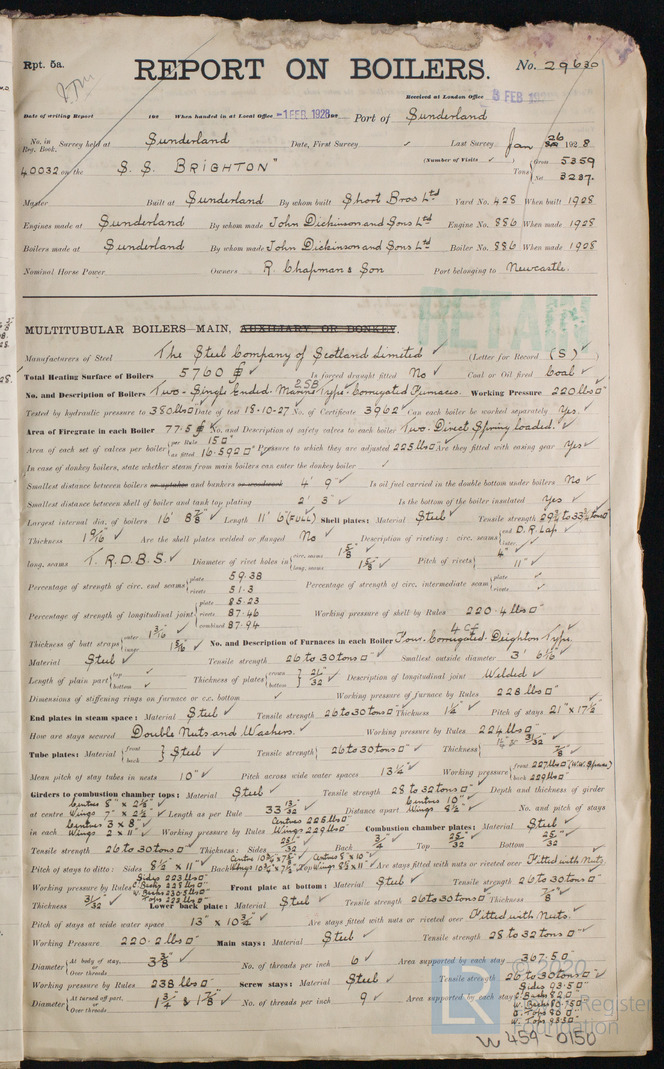 Rpt. 5a.
REPORT ON BOILERS.
No. 29630
Received at London Office 3 FEB 192
Date of writing Report 192 When handed in at Local Office -1 FEB. 1928 Port of Sunderland
No. in Reg. Book. Survey held at Sunderland Date, First Survey Last Survey Jan 26 1928
(Number of Visits )
40032 on the S. S. BRIGHTON" Tons Gross 5359 Net 3237.
Master Built at Sunderland By whom built Short Bros Ltd Yard No. 428 When built 1928
Engines made at Sunderland By whom made John Dickinson and Sons Ltd Engine No. 886 When made 1928
Boilers made at Sunderland By whom made John Dickinson and Sons Ltd Boiler No. 886 When made 1928
Nominal Horse Power Owners R. Chapman & Son Port belonging to Newcastle.
RETAIN
MULTITUBULAR BOILERS—MAIN, AUXILIARY OR DONKEY.
Manufacturers of Steel The Steel Company of Scotland Limited (Letter for Record (S) )
Total Heating Surface of Boilers 5760 Is forced draught fitted No Coal or Oil fired Coal
2SB
No. and Description of Boilers Two - Single Ended. Marine Type. Corrugated Furnaces. Working Pressure 220 lbs
Tested by hydraulic pressure to 380 lbs Date of test 18-10-27 No. of Certificate 3962 Can each boiler be worked separately Yes.
Area of Firegrate in each Boiler 77.5 No. and Description of safety valves to each boiler Two. Direct Spring loaded.
Area of each set of valves per boiler per Rule 15 as fitted 16.592 Pressure to which they are adjusted 225 lbs Are they fitted with easing gear Yes
In case of donkey boilers, state whether steam from main boilers can enter the donkey boiler
Smallest distance between boilers or uptakes and bunkers or woodwork 4' 9" Is oil fuel carried in the double bottom under boilers No
Smallest distance between shell of boiler and tank top plating 2' 3" Is the bottom of the boiler insulated Yes
Largest internal dia. of boilers 16' 8 7/8" Length 11' 6" (FULL) Shell plates: Material Steel Tensile strength 29 3/4 to 33 3/4 tons
Thickness 1 9/16" Are the shell plates welded or flanged No Description of riveting: circ. seams end D.R. Lap. inter.
long. seams T. R. D. B. S. Diameter of rivet holes in circ. seams 1 5/8" long. seams 1 5/8" Pitch of rivets 4" 11"
Percentage of strength of circ. end seams plate 59.38 rivets 51.3 Percentage of strength of circ. intermediate seam plate rivets
Percentage of strength of longitudinal joint plate 85.23 rivets 87.46 combined 87.94 Working pressure of shell by Rules 220.4 lbs
Thickness of butt straps outer 1 3/16" inner 1 5/16" No. and Description of Furnaces in each Boiler 4 CF Four. Corrugated. Deighton Type.
Material Steel Tensile strength 26 to 30 tons Smallest outside diameter 3' 6 1/16"
Length of plain part top bottom Thickness of plates crown bottom 21/32" Description of longitudinal joint Welded
Dimensions of stiffening rings on furnace or c.c. bottom Working pressure of furnace by Rules 228 lbs
End plates in steam space: Material Steel Tensile strength 26 to 30 tons Thickness 1 1/4" Pitch of stays 21" x 17 1/2"
How are stays secured Double Nuts and Washers. Working pressure by Rules 224 lbs
Tube plates: Material front back Steel Tensile strength 26 to 30 tons Thickness 31/32" 7/8"
Mean pitch of stay tubes in nests 10" Pitch across wide water spaces 13 1/4" Working pressure front 227 lbs (W.W. Space) back 229 lbs
Girders to combustion chamber tops: Material Steel Tensile strength 28 to 32 tons Depth and thickness of girder
at centre Centres 8" x 2 1/2" Wings 7" x 2 1/2" Length as per Rule 33 13/32" Distance apart Centres 10" Wings 8 1/2" No. and pitch of stays
in each Centres 3 x 8" Wings 2 x 11" Working pressure by Rules Centres 225 lbs Wings 229 lbs Combustion chamber plates: Material Steel
Tensile strength 26 to 30 tons Thickness: Sides 25/32" Back 3/4" Top 25/32" Bottom 25/32"
Pitch of stays to ditto: Sides 8 1/2" x 11" Back Top Centres 8" x 10" Wings 8 1/2" x 11" Are stays fitted with nuts or riveted over Fitted with Nuts.
Working pressure by Rules Sides 223 lbs C. Backs 228 lbs W. Backs 230.5 lbs Tops 222 lbs Front plate at bottom: Material Steel Tensile strength 26 to 30 tons
Thickness 31/32" Lower back plate: Material Steel Tensile strength 26 to 30 tons Thickness 7/8"
Pitch of stays at wide water space 13" x 10 3/4" Are stays fitted with nuts or riveted over Fitted with Nuts.
Working Pressure 220.2 lbs Main stays: Material Steel Tensile strength 28 to 32 tons
Diameter At body of stay, or Over threads 3 3/8" No. of threads per inch 6 Area supported by each stay 367.5
Working pressure by Rules 238 lbs Screw stays: Material Steel Tensile strength 26 to 30 tons
Diameter At turned off part, or Over threads 1 3/4" & 1 7/8" No. of threads per inch 9 Area supported by each stay Sides 93.5 C. Backs 82 W. Backs 80.750 C. Tops 80 W. Tops 93.5
© 2020
LR
Lloyd's Register
Foundation
W459-0150